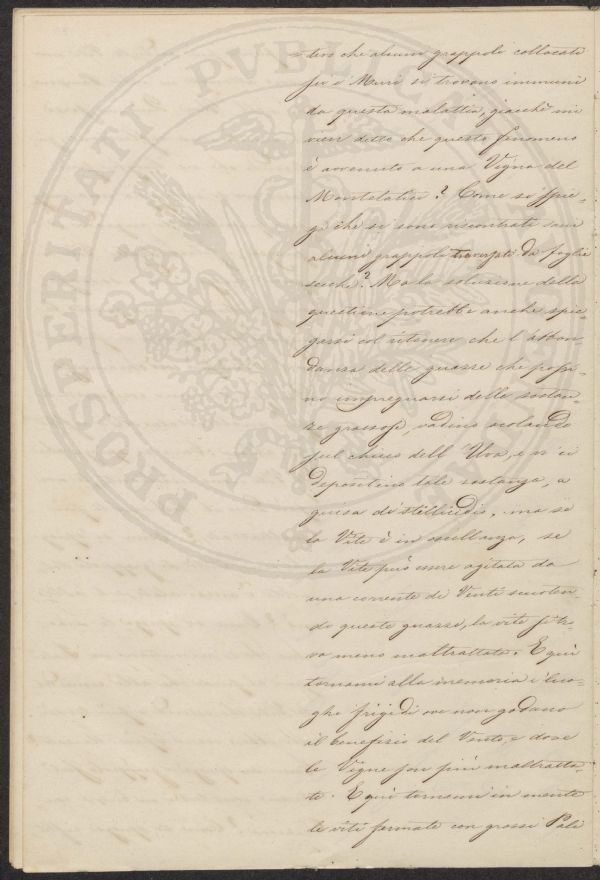 =tivo che alcuni grappoli collocati
fra i Muri si trovano immuni
da questa malattia, giacchè mi
vien detto che questo fenomeno
è avvenuto a una Vigna del
Montelatici? Come si spie-
ga che si sono riscontrati sani
alcuni grappoli traversati da foglie
secche? Ma la soluzione della
questione potrebbe anche spie-
garsi col ritenere che l'abbon
danza delle guazze che posso-
no impregnarsi delle sostan-
ze grassose, vadino scolando
sul chicco dell'Uva, e vi ci
depositino tale sostanza, a
guisa di stillicidio, ma se
la Vite è in oscillanza, se
la Vite può essere agitata da
una corrente di Venti scuoten-
do queste guazze, la vite si tro-
va meno maltrattata. E quì
tornami alla memoria i luo-
ghi frigidi ove non godano
il benefizio del Vento, e dove
le Vigne son più maltratta-
te. E quì tornami in mente
le viti fermate con grossi Pali
PROSPERITATI PUBLICAE